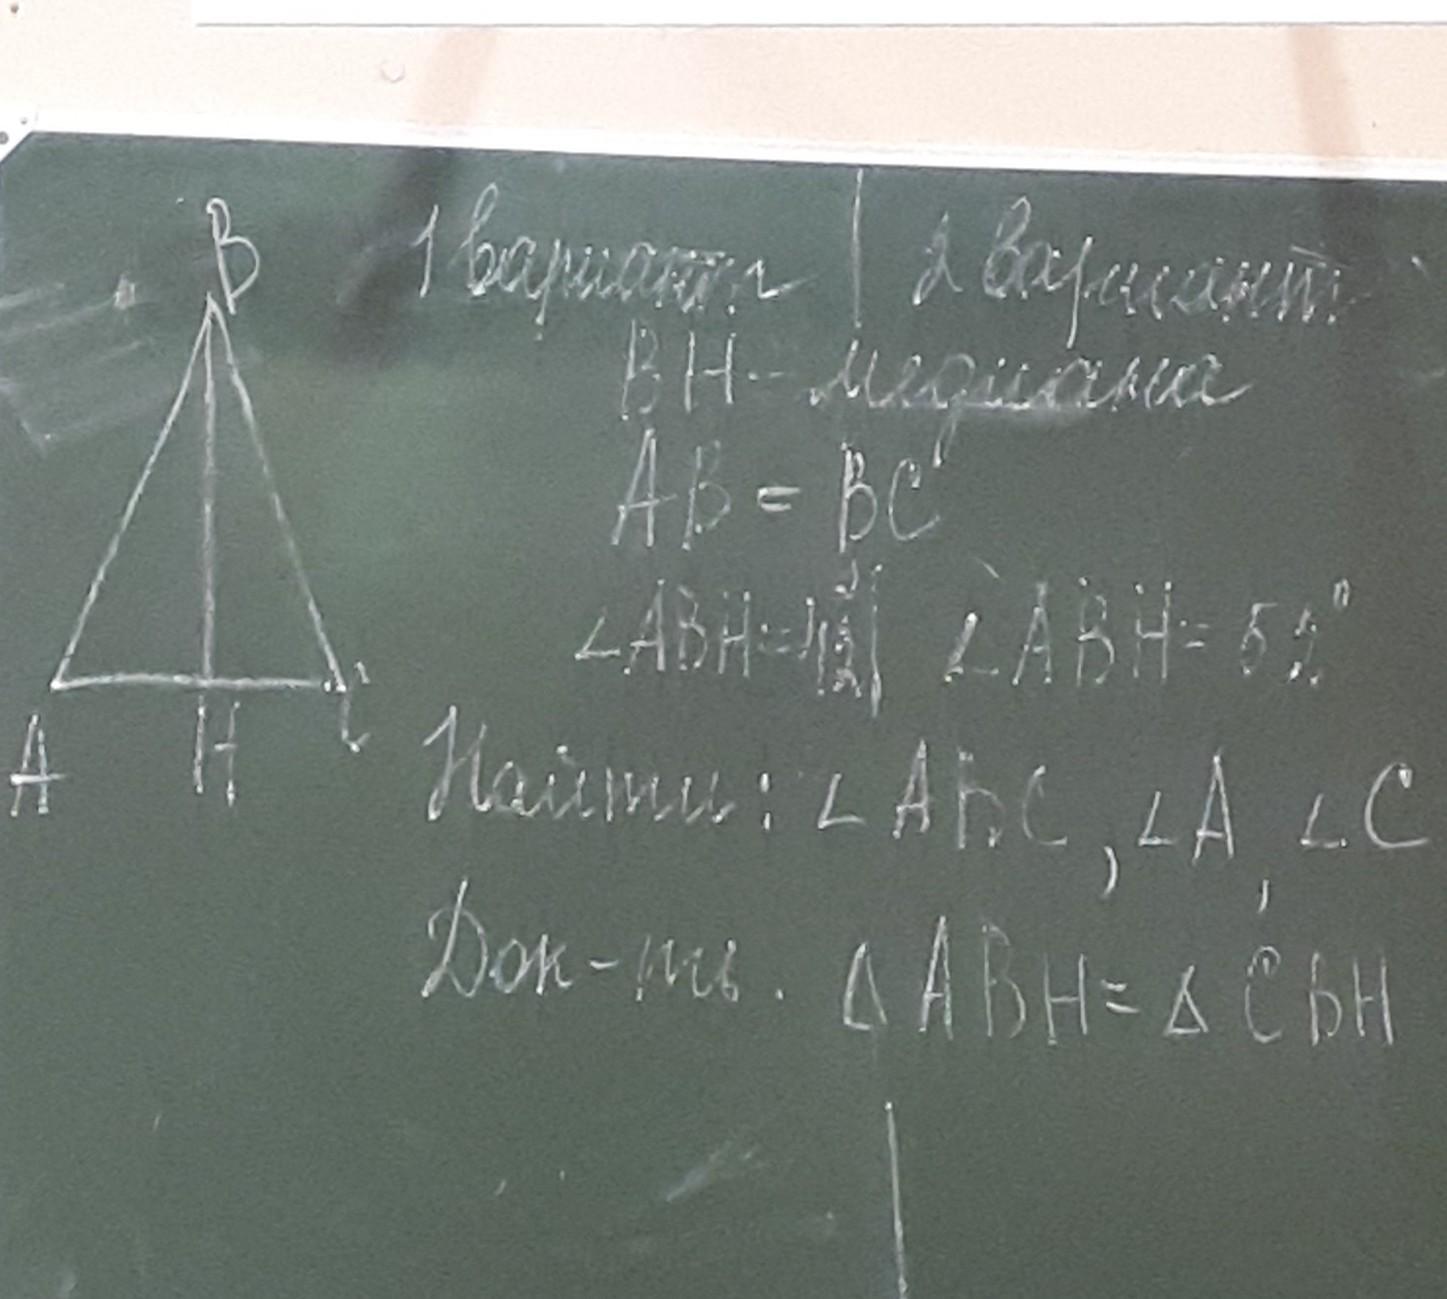 B
1 вариант
2 вариант
BH - медиана
AB = BC
∠ABH=
∠ABH=52°
A
H
C
Найти: ∠ABC, ∠A, ∠C
Док-ть. Δ ABH = Δ CBH